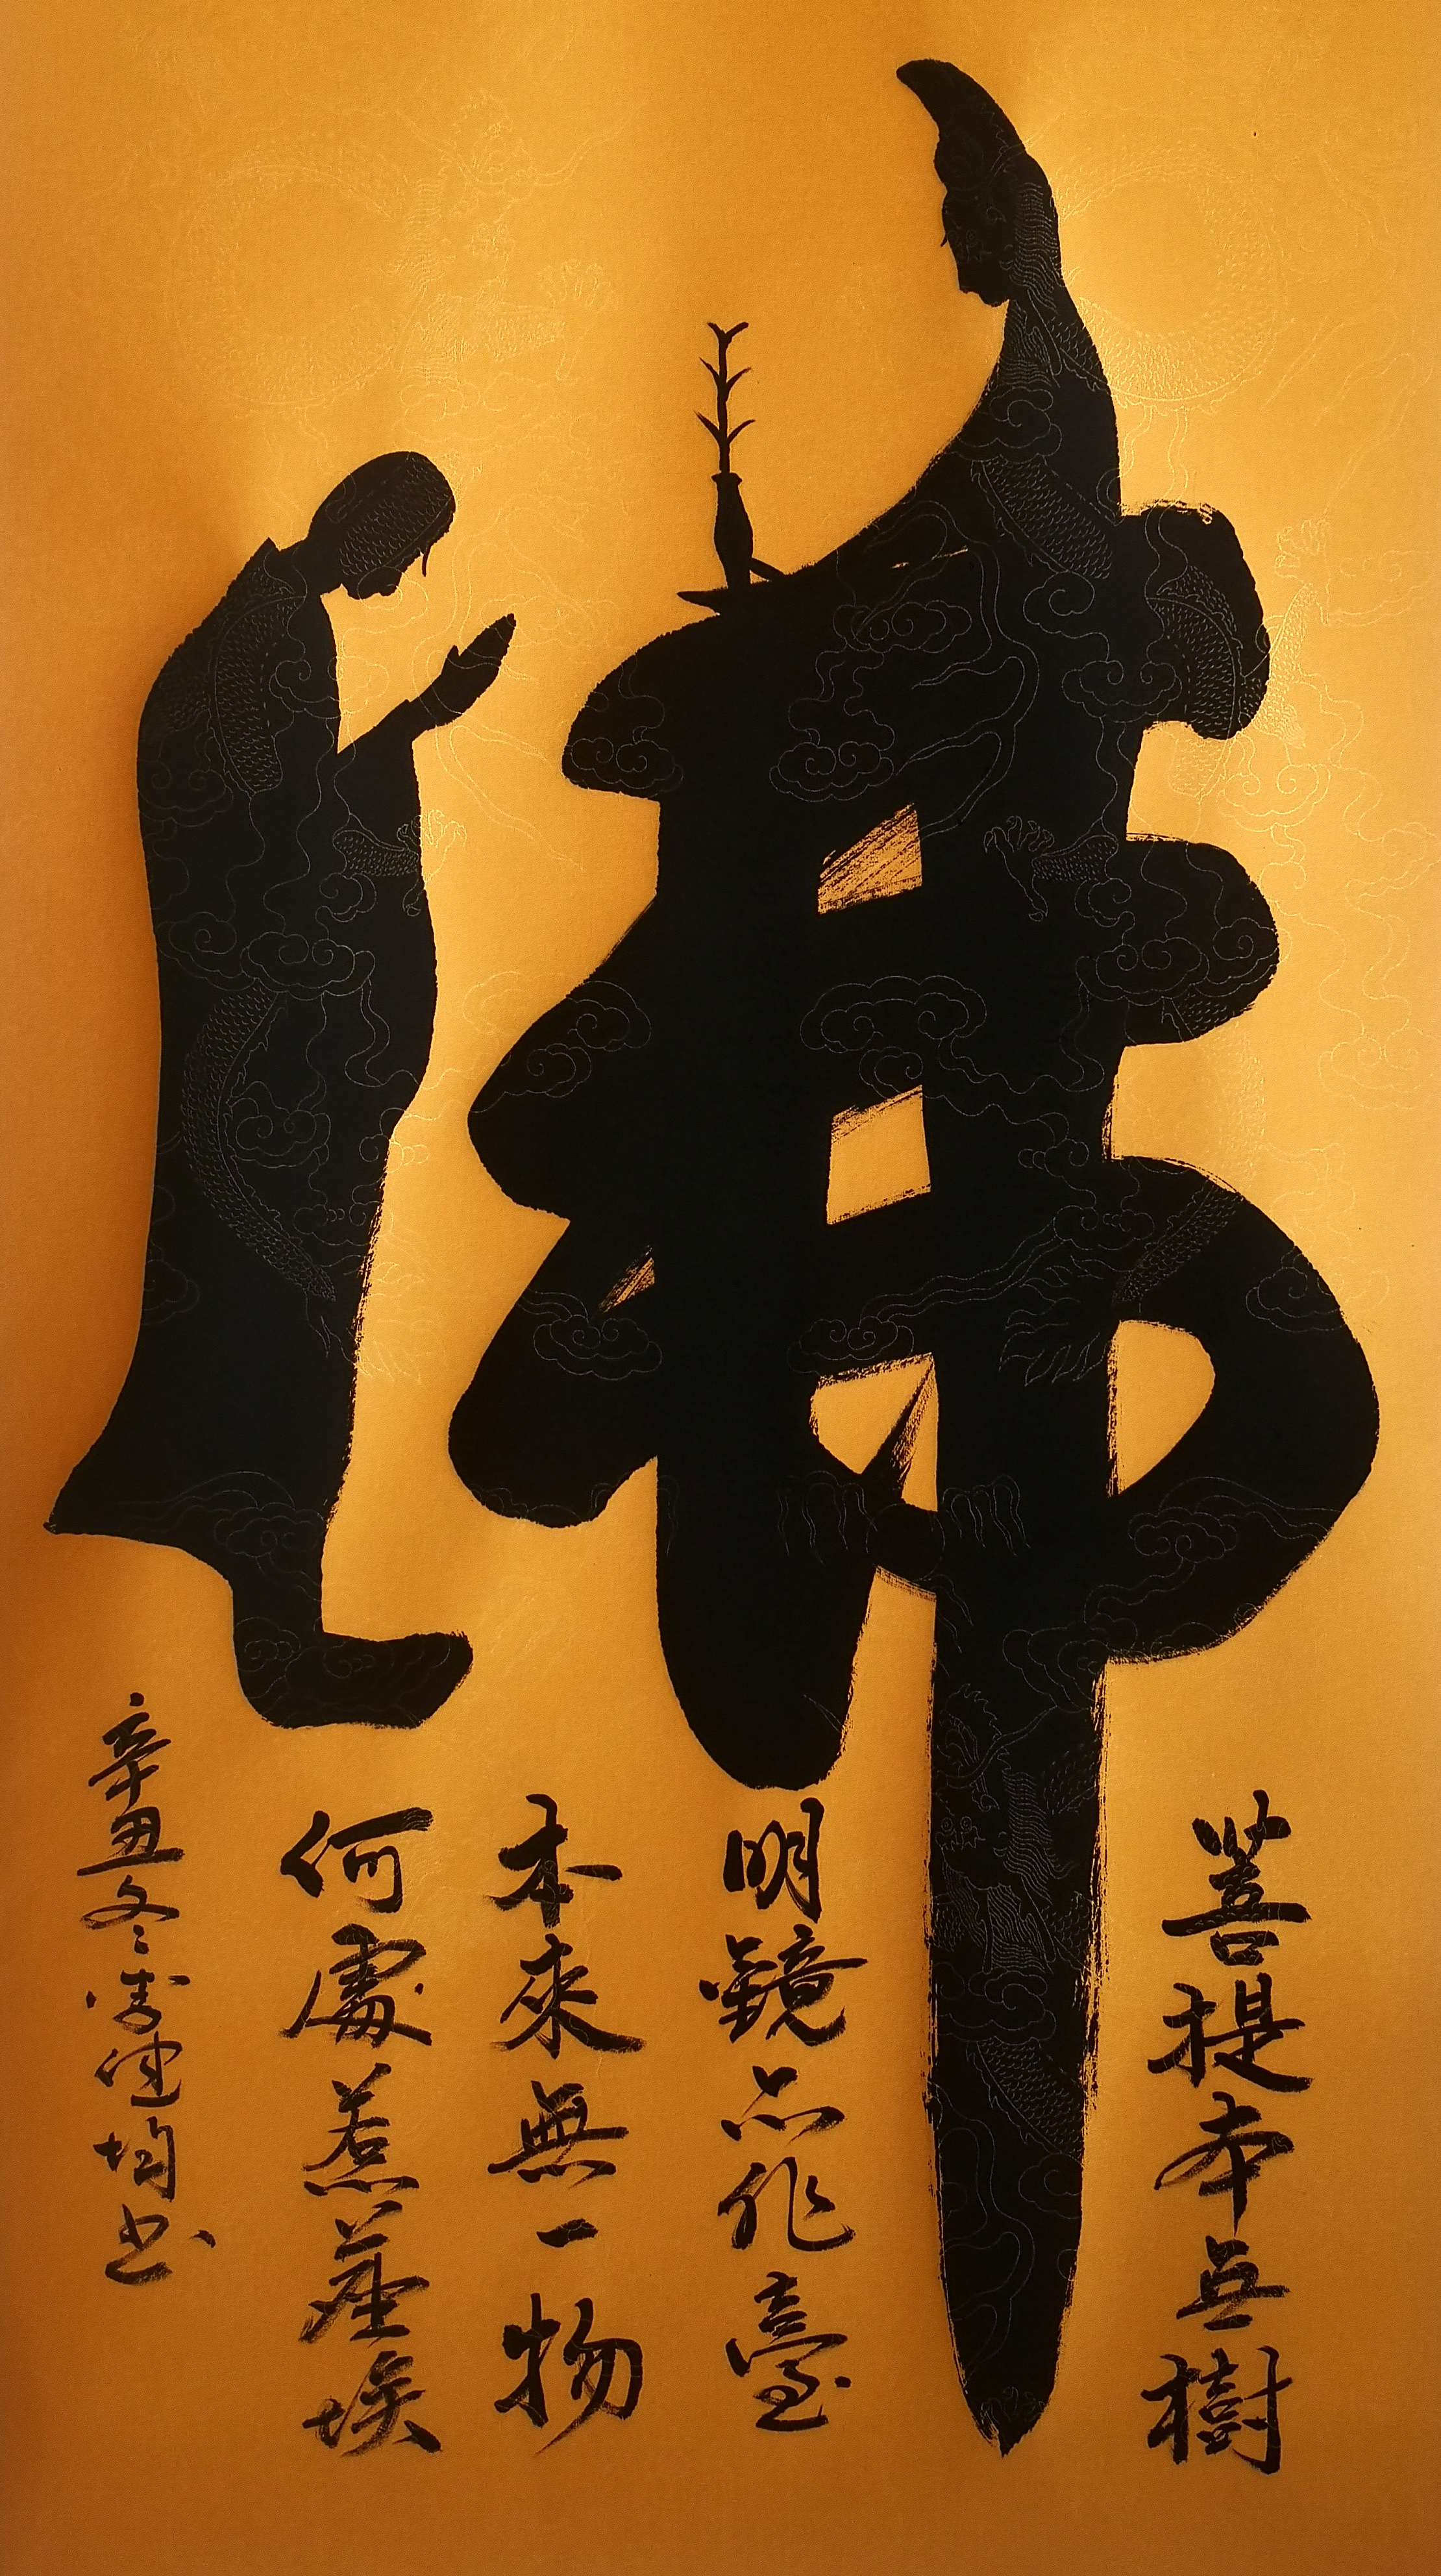 佛
菩提本無樹
明鏡亦非臺
本來無一物
何處惹塵埃
辛丑冬 健均書